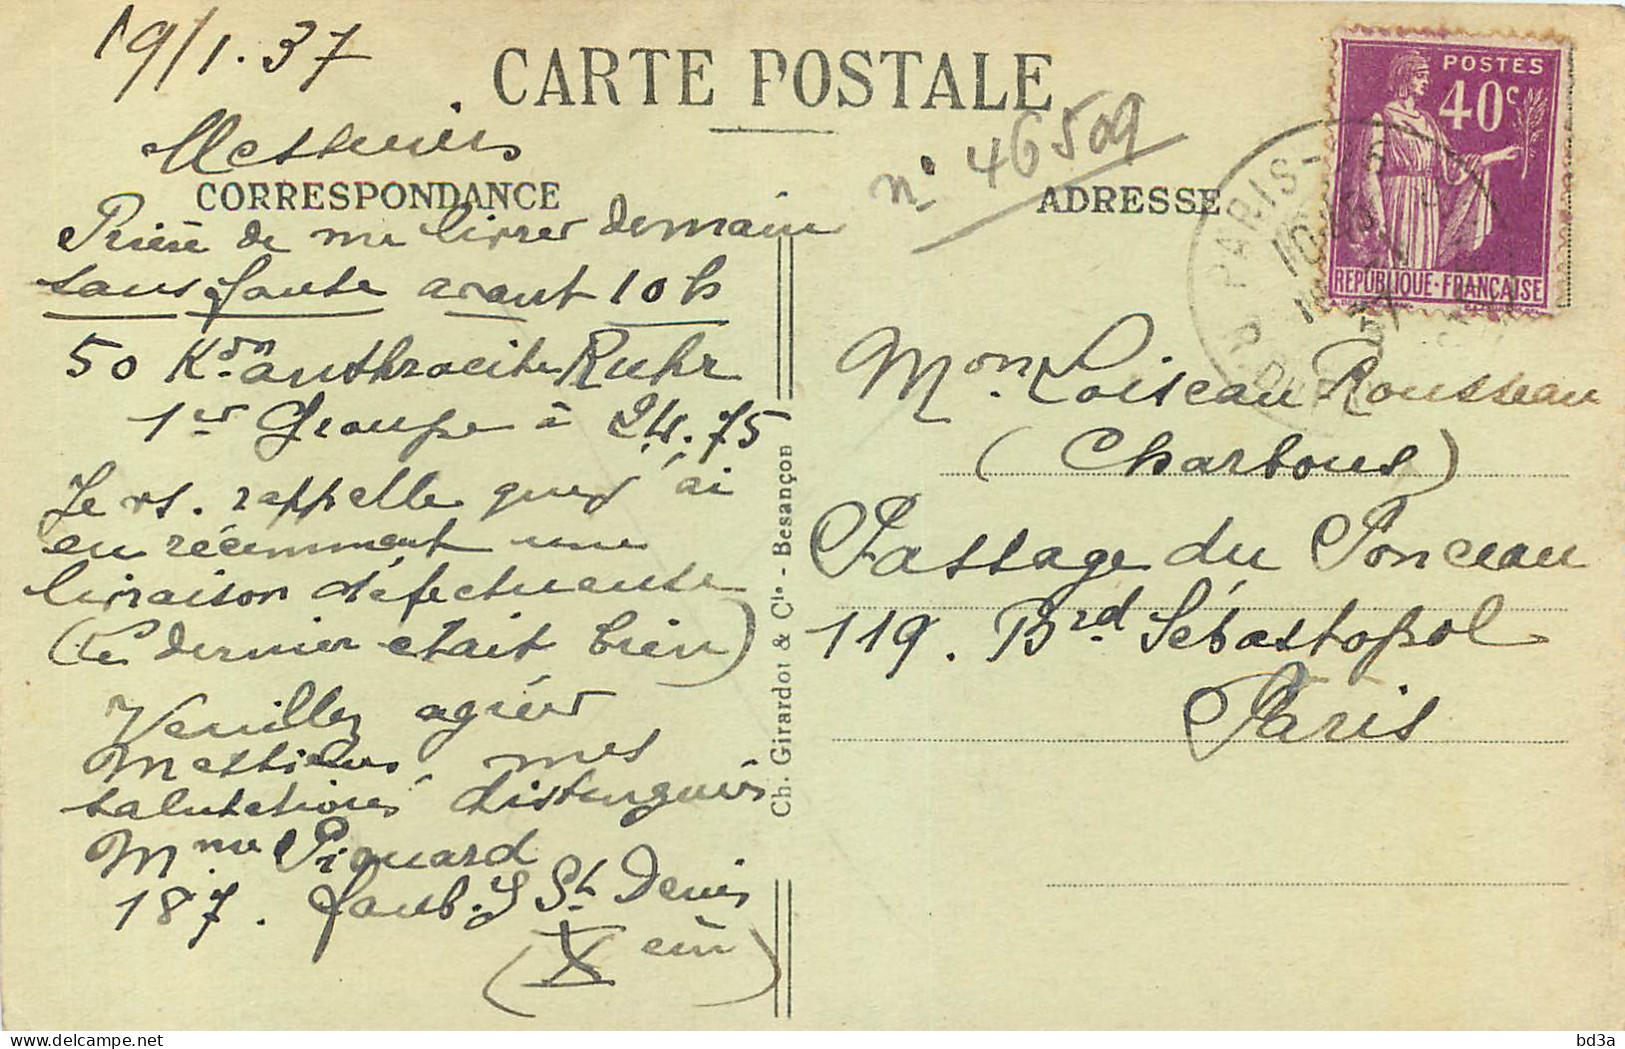 19/1.37
CARTE POSTALE
Messieurs
n° 46509
CORRESPONDANCE
ADRESSE
POSTES
40c
REPUBLIQUE-FRANÇAISE
PARIS
Prière de me livrer demain
sans faute avant 10 h
50 K. anthracite Ruhr
1er Groupe à 24.75
Je vs. rappelle que j'ai
eu récemment une
livraison défectueuse
(la dernière était bien)
Veuillez agréer
Messieurs mes
salutations distinguées
Mme Piquard
187. Faub. St Denis
(X eme)
Ch. Girardot & Cie - Besançon
Mon. Loiseau Rousseau
(Charbons)
Passage du Ponceau
119. Brd Sébastopol
Paris
bd3a